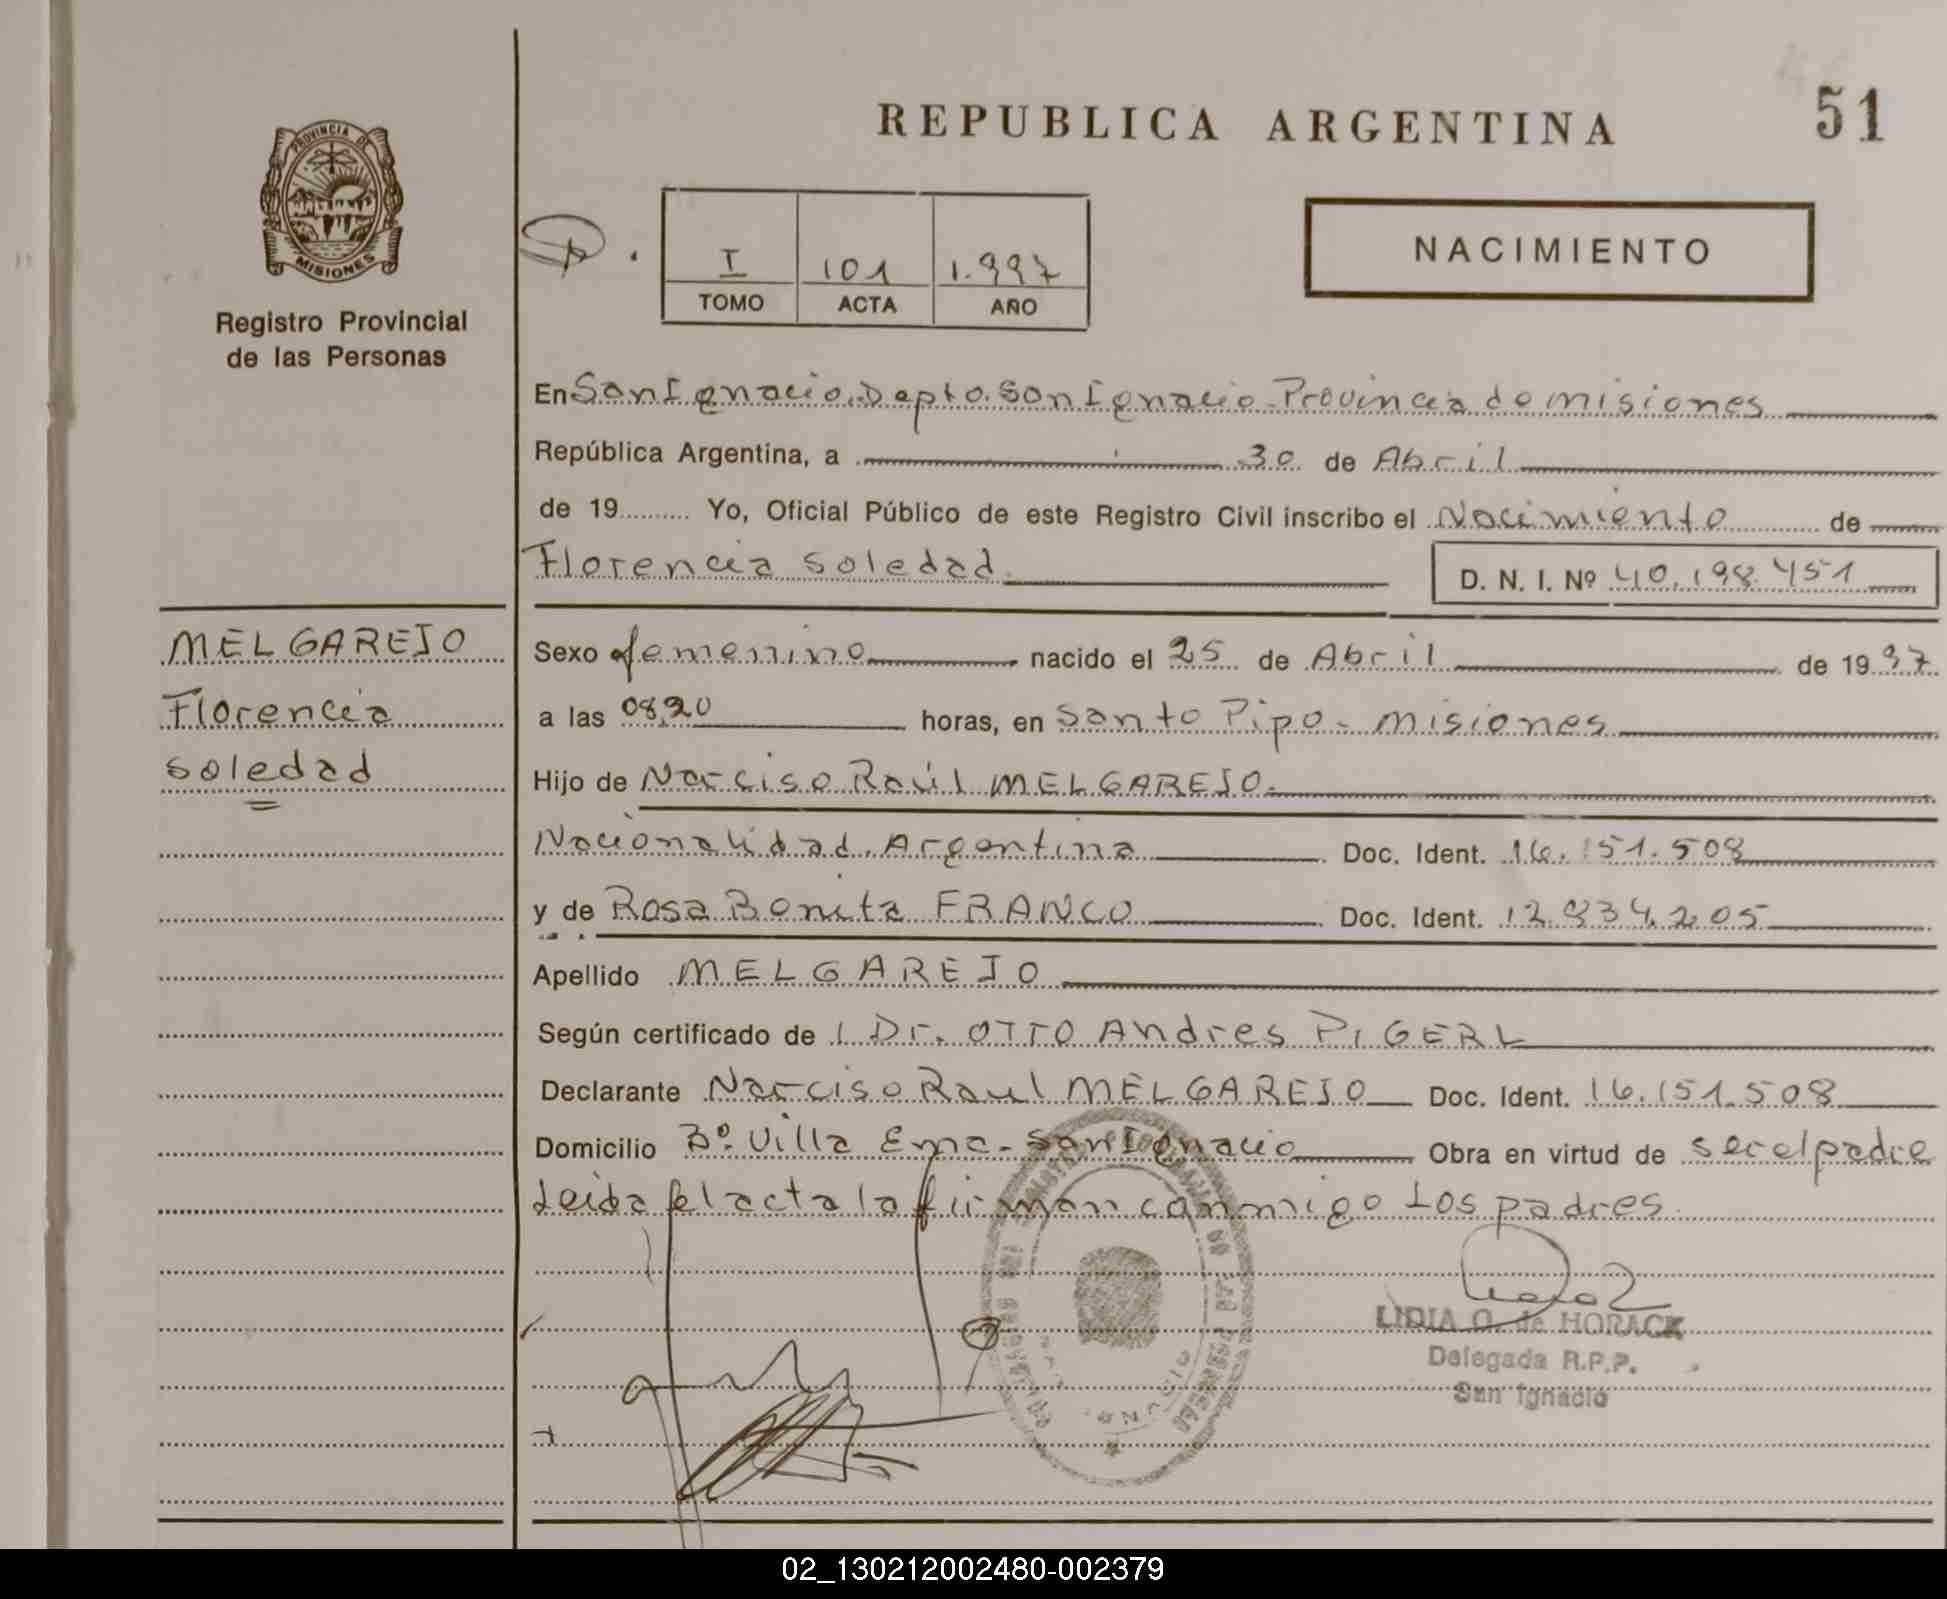 REPUBLICA ARGENTINA
51
PROVINCIA DE
MISIONES
Registro Provincial
de las Personas
I 101 1.997
TOMO ACTA AÑO
NACIMIENTO
En San Ignacio, Depto. San Ignacio - Provincia de misiones
República Argentina, a 30 de Abril
de 19.......... Yo, Oficial Público de este Registro Civil inscribo el Nacimiento de
Florencia Soledad.
D. N. I. Nº 40.198.451
MELGAREJO
Florencia
Soledad
Sexo femenino nacido el 25 de Abril de 1997.
a las 08,20 horas, en Santo Pipo - misiones
Hijo de Narciso Raúl MELGAREJO.
Nacionalidad Argentina Doc. Ident. 16.151.508
y de Rosa Benita FRANCO Doc. Ident. 12.934.205
Apellido MELGAREJO
Según certificado de Dr. OTTO Andres PIGERL
Declarante Narciso Raul MELGAREJO Doc. Ident. 16.151.508
Domicilio Bº Villa Ema - San Ignacio Obra en virtud de ser el padre
Leida el acta la firman conmigo Los padres.
LIDIA O. de HORACK
Delegada R.P.P.
San Ignacio
02_130212002480-002379